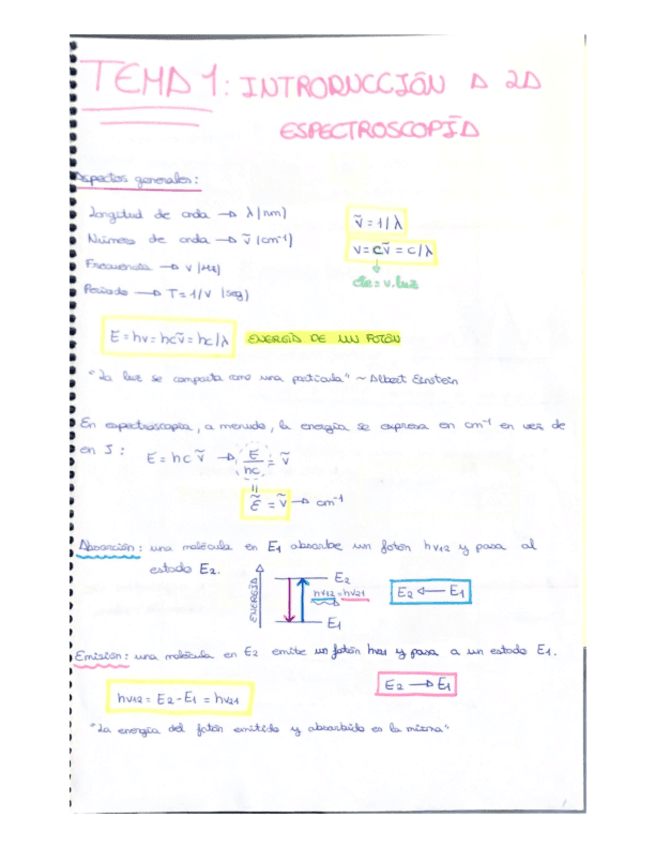 TEMA 1: INTRODUCCIÓN A LA
ESPECTROSCOPÍA
Aspectos generales:
Longitud de onda → λ (nm)
ṽ = 1/λ
Número de onda → ṽ (cm⁻¹)
ν = cṽ = c/λ
Frecuencia → ν (Hz)
cte = v. luz
Periodo → T = 1/ν (seg)
E = hν = hcṽ = hc/λ ENERGÍA DE UN FOTÓN
"La luz se comporta como una partícula" ~ Albert Einstein
En espectroscopia, a menudo, la energía se expresa en cm⁻¹ en vez de
en J: E = hcṽ → E/hc = ṽ
Ẽ = ṽ → cm⁻¹
Absorción: una molécula en E1 absorbe un fotón hν12 y pasa al
estado E2.
ENERGÍA
E2
hν12 = hν21
E1
E2 ← E1
Emisión: una molécula en E2 emite un fotón hν21 y pasa a un estado E1.
E2 → E1
hν12 = E2 - E1 = hν21
"La energía del fotón emitido y absorbido es la misma"